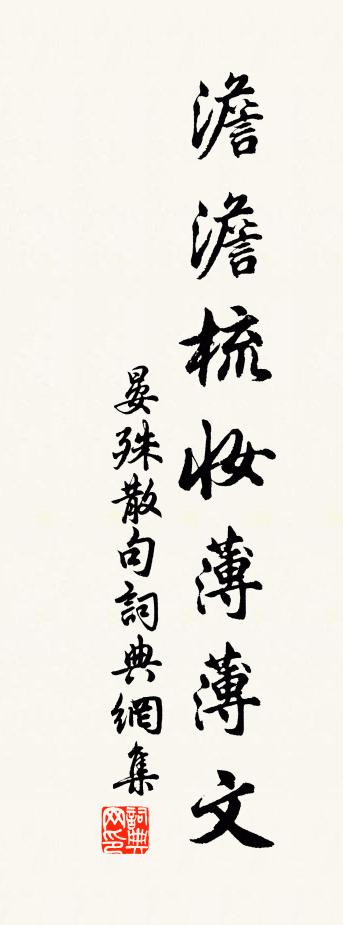 澹澹梳妆薄薄文
晏殊散句詞典網集
詞典网印